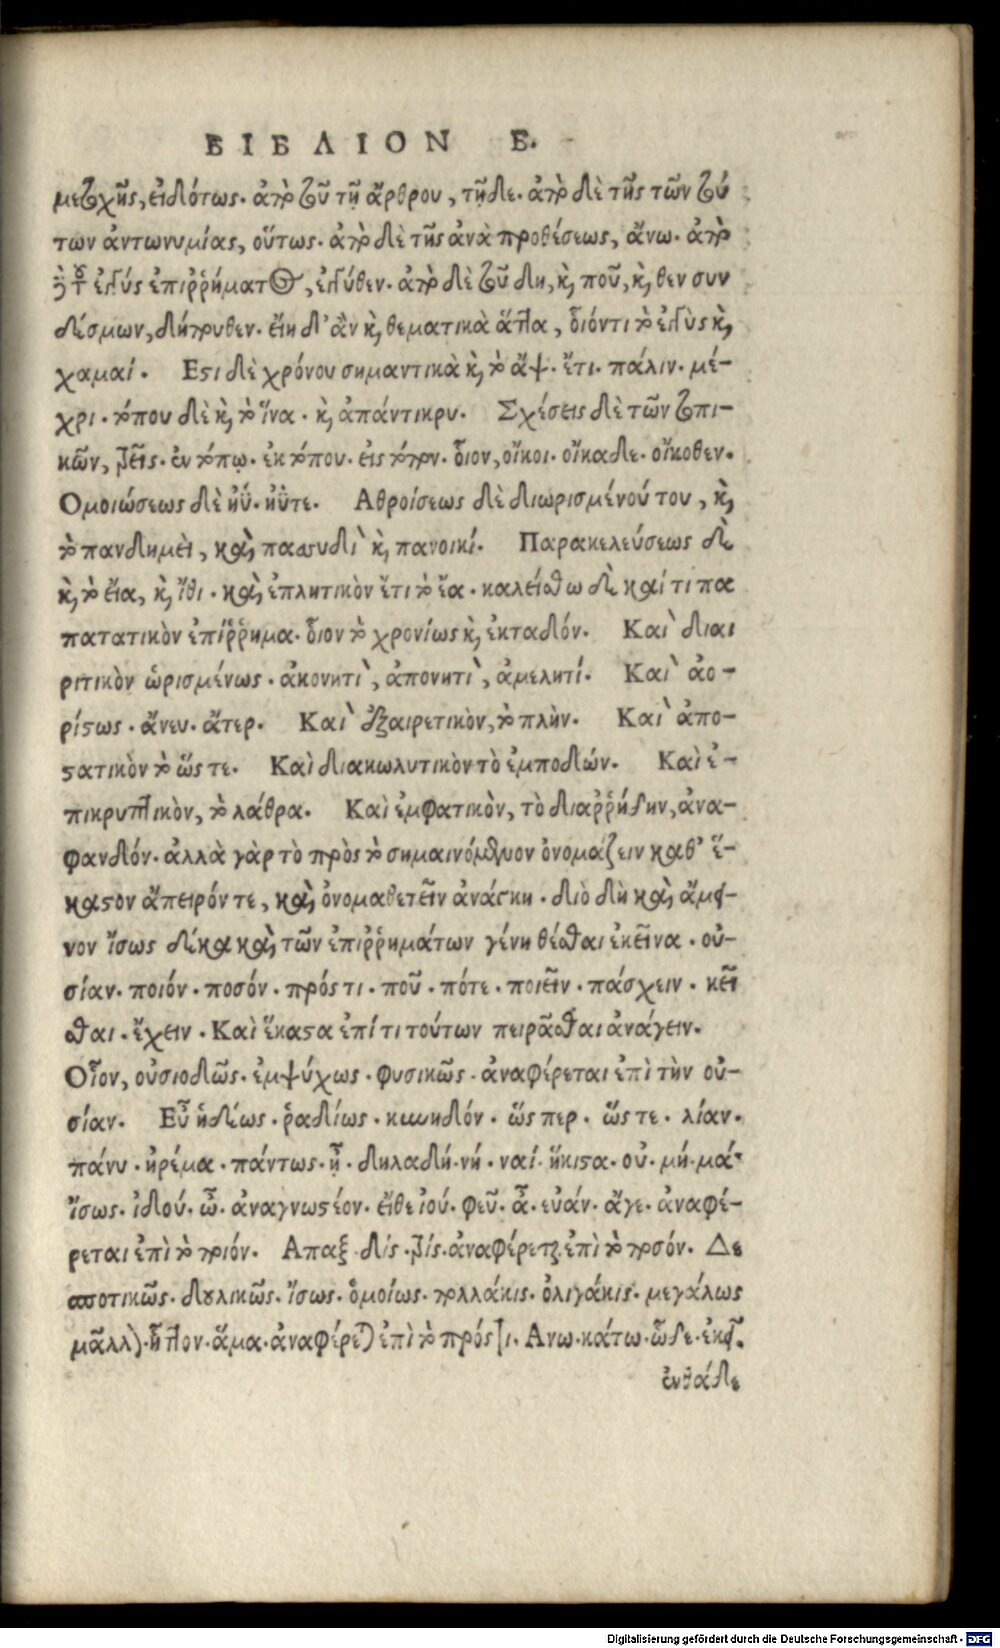 ΒΙΒΛΙΟΝ Ε.
μετοχῆς, εἰδότως. ἀπὸ τοῦ τῇ ἄρθρου, τῇδε. ἀπὸ δὲ τῆς τῶν τού
των ἀντωνυμίας, οὕτως. ἀπὸ δὲ τῆς ἀνὰ προθέσεως, ἄνω. ἀπὸ
ἐγγύς ἐπιῤῥήματος, ἐγγύθεν. ἀπὸ δὲ τοῦ δη, καὶ, ποῦ, καὶ, θεν συν
δέσμων, δήπουθεν. εἴη δ' ἂν καὶ θεματικὰ ἅττα, οἷόν τι τὸ ἐγγὺς καὶ
χαμαί. Εστι δὲ χρόνου σημαντικὰ καὶ τὸ ἄψ. ἔτι. πάλιν. μέ-
χρι. τόπου δὲ καὶ τὸ ἵνα. καὶ ἀπάντικρυ. Σχέσεις δὲ τῶν τοπι-
κῶν, τρεῖς. ἐν τόπῳ. ἐκ τόπου. εἰς τόπον. οἷον, οἴκοι. οἴκαδε. οἴκοθεν.
Ομοιώσεως δὲ ἠΰ. ἠΰτε. Αθροίσεως δὲ διωρισμένού του, καὶ
τὸ πανδημεὶ, καὶ πασσυδὶ καὶ πανοικί. Παρακελεύσεως δὲ
καὶ τὸ εἴα, καὶ ἴθι. καὶ ἐπλητικὸν ἔτι τὸ ἔα. καλείσθω δὲ καί τι πα
πατατικὸν ἐπίῤῥημα. οἷον τὸ χρονίως καὶ ἐκταδόν. Καὶ διαι
ριτικὸν ὡρισμένως. ἀκονητὶ, ἀπονητὶ, ἀμελητί. Καὶ ἀο-
ρίστως. ἄνευ. ἄτερ. Καὶ ἐξαιρετικὸν, τὸ πλὴν. Καὶ ἀπο-
στατικὸν τὸ ὥστε. Καὶ διακωλυτικὸν τὸ ἐμποδών. Καὶ ἐ-
πικρυπτικὸν, τὸ λάθρα. Καὶ ἐμφατικὸν, τὸ διαῤῥήδην, ἀνα-
φανδόν. ἀλλὰ γὰρ τὸ πρὸς τὸ σημαινόμενον ὀνομάζειν καθ' ἕ-
καστον ἄπειρόν τε, καὶ ὀνομαθετεῖν ἀνάγκη. διὸ δὴ καὶ ἄμει-
νον ἴσως δέκα καὶ τῶν ἐπιῤῥημάτων γένη θέσθαι ἐκεῖνα. οὐ-
σίαν. ποιόν. ποσόν. πρός τι. ποῦ. πότε. ποιεῖν. πάσχειν. κεῖ
σθαι. ἔχειν. Καὶ ἕκαστα ἐπί τι τούτων πειρᾶσθαι ἀνάγειν.
Οἷον, οὐσιοδῶς. ἐμψύχως. φυσικῶς. ἀναφέρεται ἐπὶ τὴν οὐ-
σίαν. Εὖ ἡδέως. ῥαδίως. κυνηδόν. ὥσπερ. ὥστε. λίαν.
πάνυ. ἠρέμα. πάντως. ᾗ. δηλαδή. νή. ναί. ἥκιστα. οὐ. μή. μά.
ἴσως. ἰδού. ὦ. ἀναγνωστέον. εἴθε ἰού. φεῦ. ἆ. εὐάν. ἄγε. ἀναφέ-
ρεται ἐπὶ τὸ ποιόν. Απαξ. δίς. τρίς. ἀναφέρεται ἐπὶ τὸ ποσόν. Δε
σποτικῶς. δουλικῶς. ἴσως. ὁμοίως. πολλάκις. ὀλιγάκις. μεγάλως
μᾶλλον. ἧττον. ἅμα. ἀναφέρεται ἐπὶ τὸ πρός τι. Ανω. κάτω. ὧδε. ἐκεῖ.
ἐνθάδε
Digitalisierung gefördert durch die Deutsche Forschungsgemeinschaft - DFG